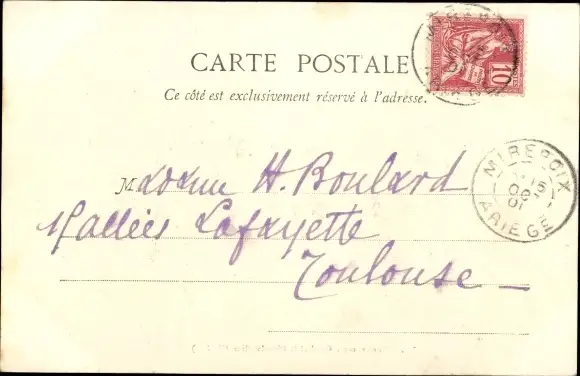 CARTE POSTALE
Ce côté est exclusivement réservé à l'adresse.
10
MIREPOIX
16
OCT
01
ARIEGE
Madame H. Boulard
Allées Lafayette
Toulouse